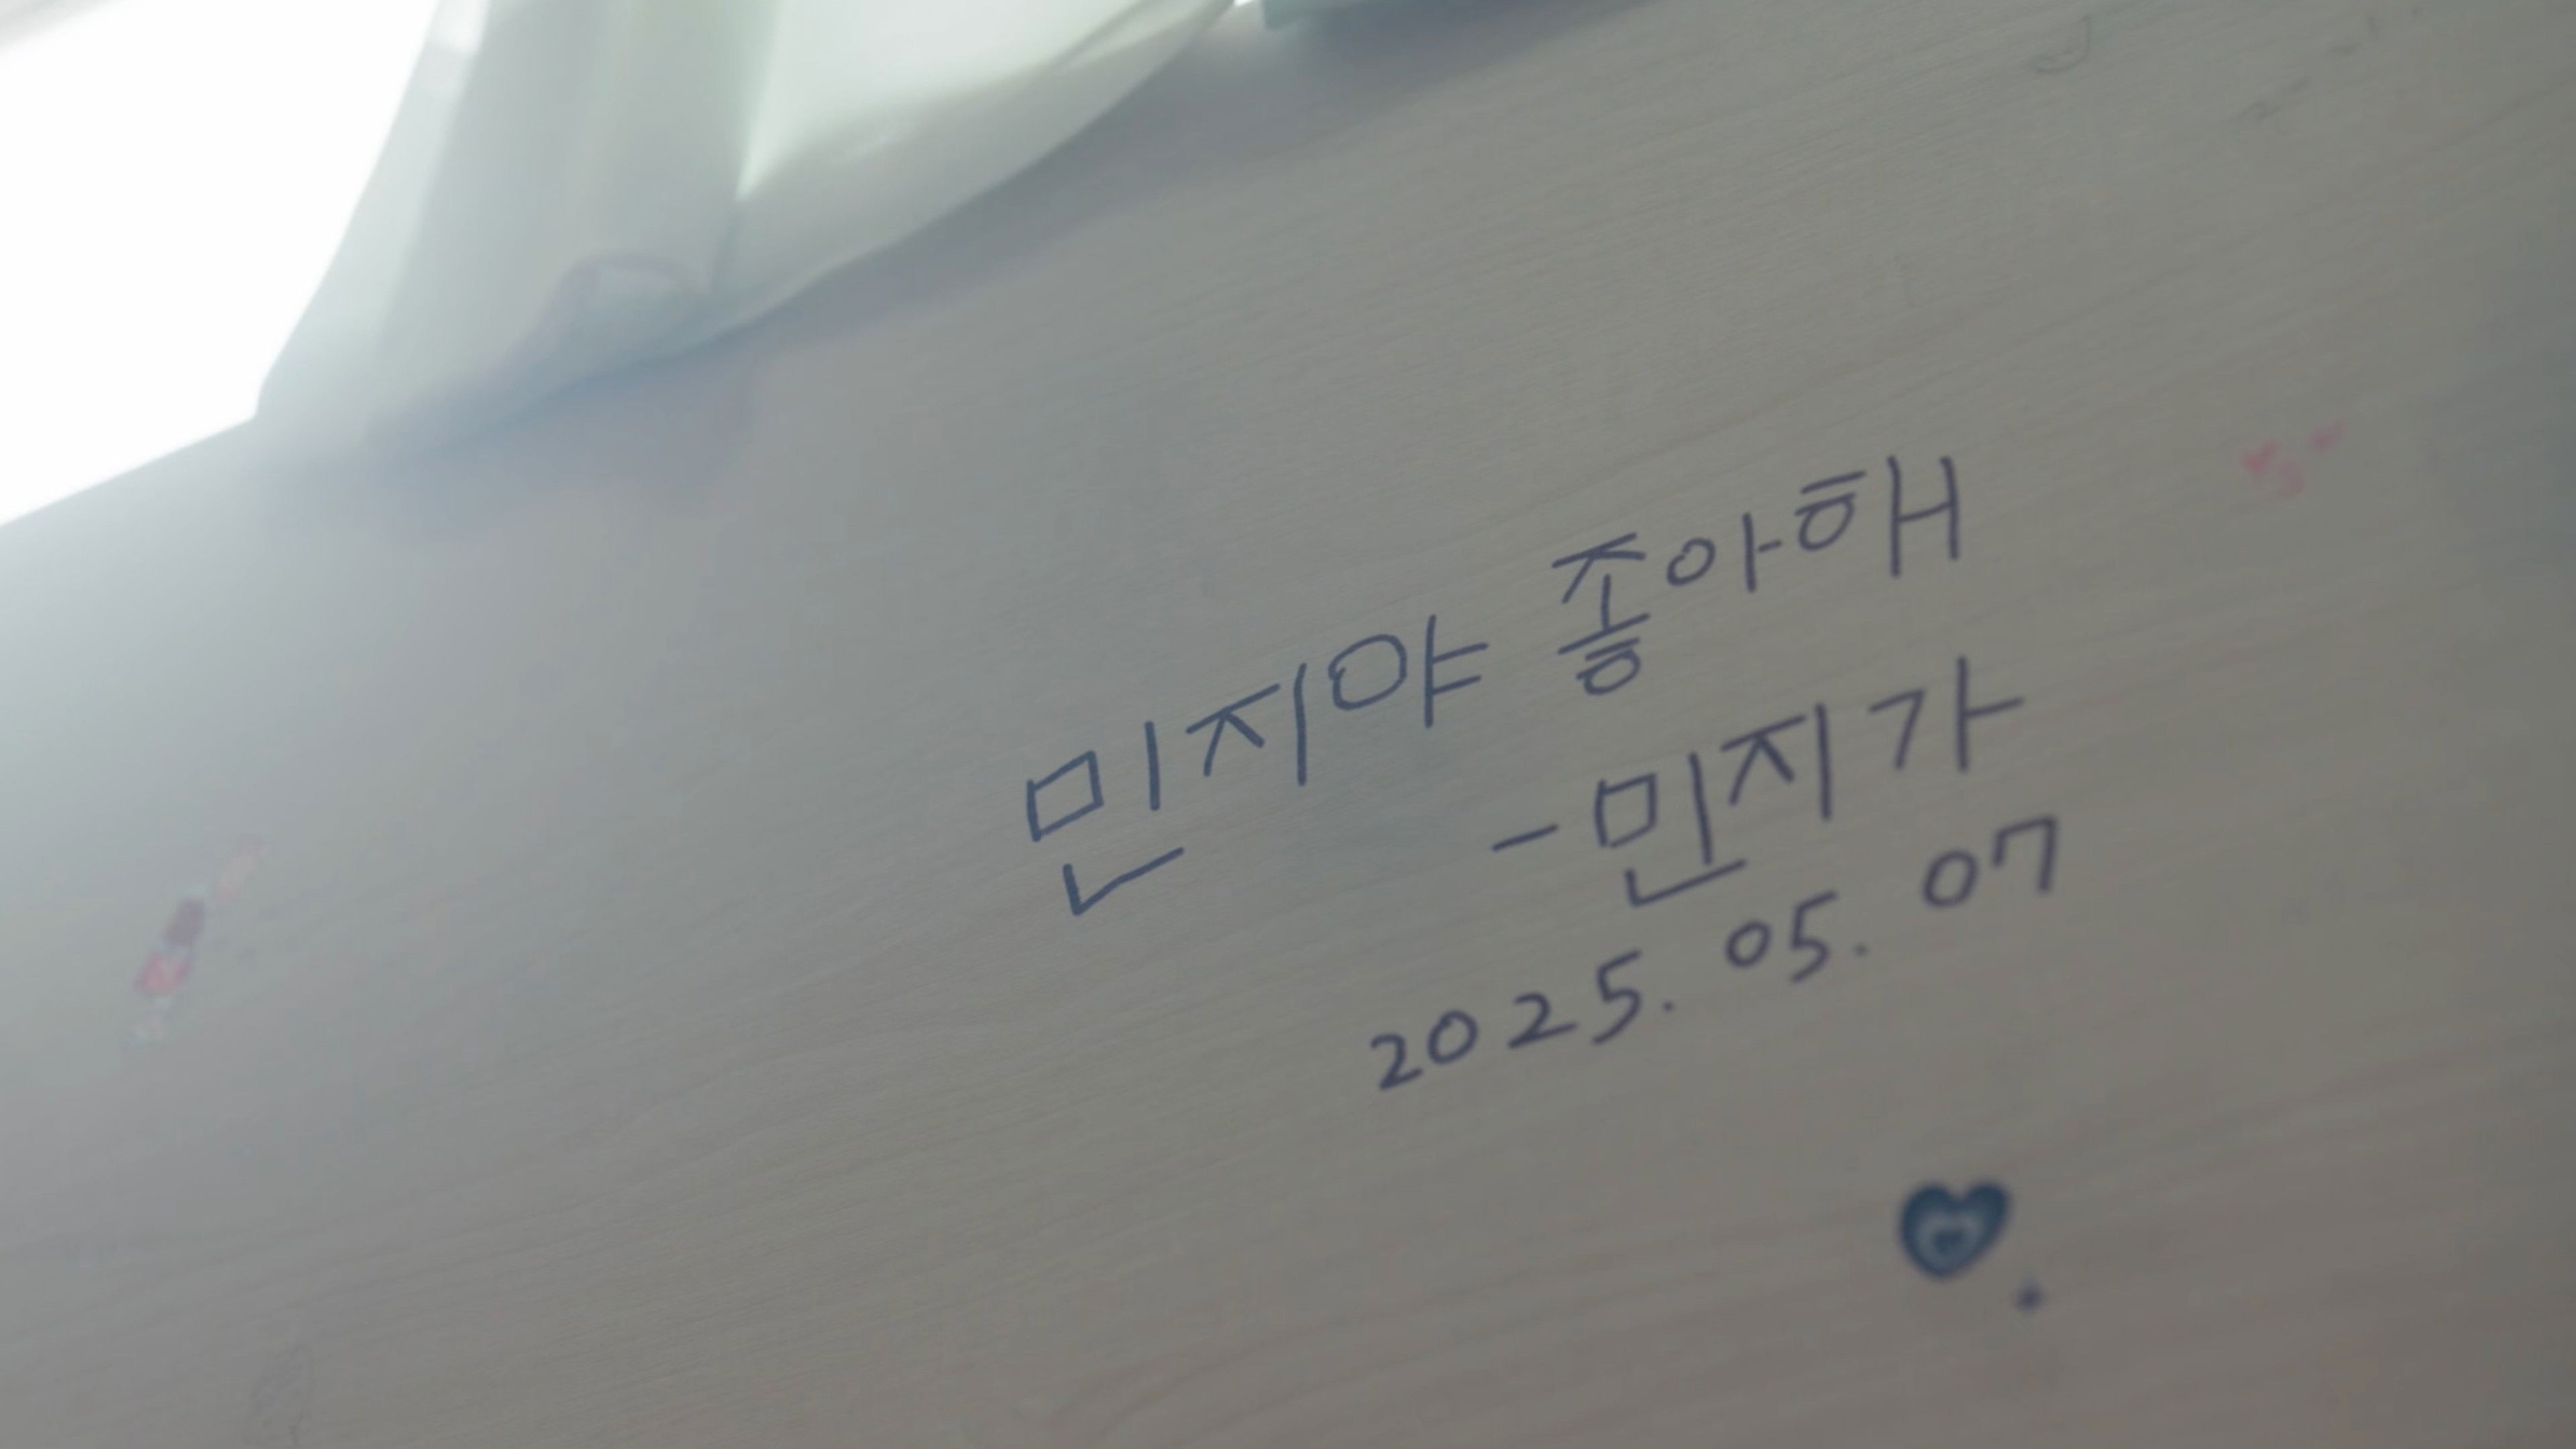 민지야 좋아해
-민지가
2025. 05. 07